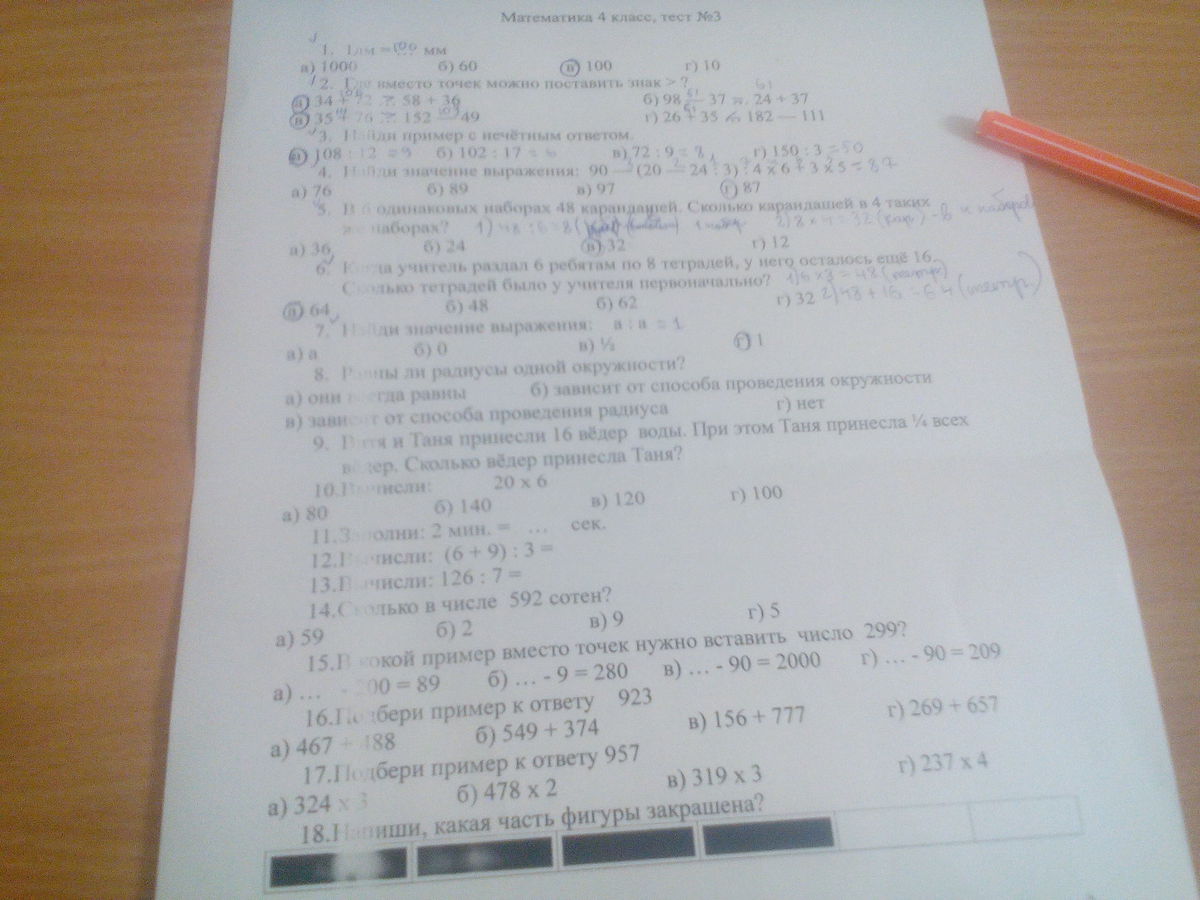 Математика 4 класс, тест №3
1. 1дм = 100 мм
а) 1000 б) 60 в) 100 г) 10
2. Где вместо точек можно поставить знак > ?
а) 34 + 72 ... 58 + 36 б) 98 — 37 ... 24 + 37
в) 35 + 76 ... 152 — 49 г) 26 + 35 ... 182 — 111
3. Найди пример с нечётным ответом.
а) 108 : 12 = 9 б) 102 : 17 = 6 в) 72 : 9 = 8 г) 150 : 3 = 50
4. Найди значение выражения: 90 — (20 — 24 : 3) : 4 х 6 + 3 х 5 = 87
а) 76 б) 89 в) 97 г) 87
5. В 6 одинаковых наборах 48 карандашей. Сколько карандашей в 4 таких
же наборах? 1) 48 : 6 = 8 2) 8 х 4 = 32 (кар) - в 4 наборах
а) 36 б) 24 в) 32 г) 12
6. Когда учитель раздал 6 ребятам по 8 тетрадей, у него осталось ещё 16.
Сколько тетрадей было у учителя первоначально? 1) 6 х 8 = 48 (тетр)
а) 64 б) 48 б) 62 г) 32 2) 48 + 16 = 64 (тетр.)
7. Найди значение выражения: а : а = 1
а) а б) 0 в) ½ г) 1
8. Равны ли радиусы одной окружности?
а) они всегда равны б) зависит от способа проведения окружности
в) зависит от способа проведения радиуса г) нет
9. Витя и Таня принесли 16 вёдер воды. При этом Таня принесла ¼ всех
вёдер. Сколько вёдер принесла Таня?
10.Вычисли: 20 х 6
а) 80 б) 140 в) 120 г) 100
11.Заполни: 2 мин. = ... сек.
12.Вычисли: (6 + 9) : 3 =
13.Вычисли: 126 : 7 =
14.Сколько в числе 592 сотен?
а) 59 б) 2 в) 9 г) 5
15.В какой пример вместо точек нужно вставить число 299?
а) ... - 200 = 89 б) ... - 9 = 280 в) ... - 90 = 2000 г) ... - 90 = 209
16.Подбери пример к ответу 923
а) 467 + 488 б) 549 + 374 в) 156 + 777 г) 269 + 657
17.Подбери пример к ответу 957
а) 324 х 3 б) 478 х 2 в) 319 х 3 г) 237 х 4
18.Напиши, какая часть фигуры закрашена?